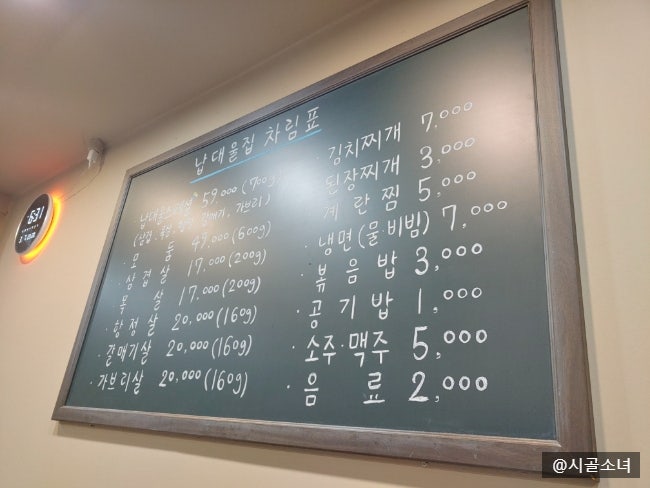 납대울집 차림표
납대울스페셜 59,000 (700g)
(삼겹, 목살, 항정, 갈매기, 가브리)
모둠 49,000 (600g)
삼겹살 17,000 (200g)
목살 17,000 (200g)
·항정살 20,000 (160g)
·갈매기살 20,000 (160g)
·가브리살 20,000 (160g)
·김치찌개 7,000
된장찌개 3,000
계란찜 5,000
·냉면(물·비빔) 7,000
·볶음밥 3,000
·공기밥 1,000
·소주·맥주 5,000
·음료 2,000
6:31
@시골소녀